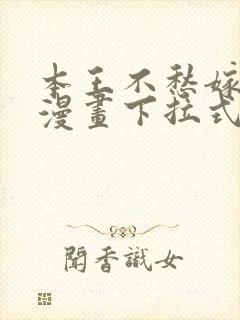 本王不愁嫁
漫畫下拉式
聞香識女